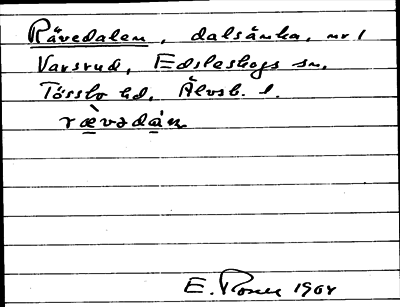 Rävedalen, dalsänka, nr 1
Varsrud, Edsleskogs sn,
Tössbo hd, Älvsb. l.
rævədàn
E. Rosell 1964